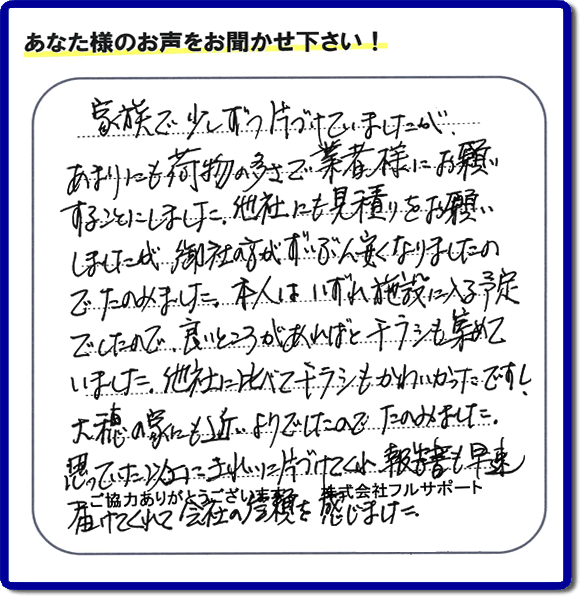 あなた様のお声をお聞かせ下さい！
家族で少しずつ片づけていましたが、
あまりにも荷物の多さで業者様にお願い
することにしました。他社にも見積りをお願い
しましたが御社の方がずいぶん安くなりましたの
でたのみました。本人はいずれ施設に入る予定
でしたので、良いところがあればとチラシも集めて
いました。他社に比べてチラシもかわいかったです！
大穂の家にも近いよりでしたのでたのみました。
思っていた以上にきれいに片づけてくれ、報告書も早速
届けてくれて会社の信頼を感じました。
ご協力ありがとうございます　株式会社フルサポート